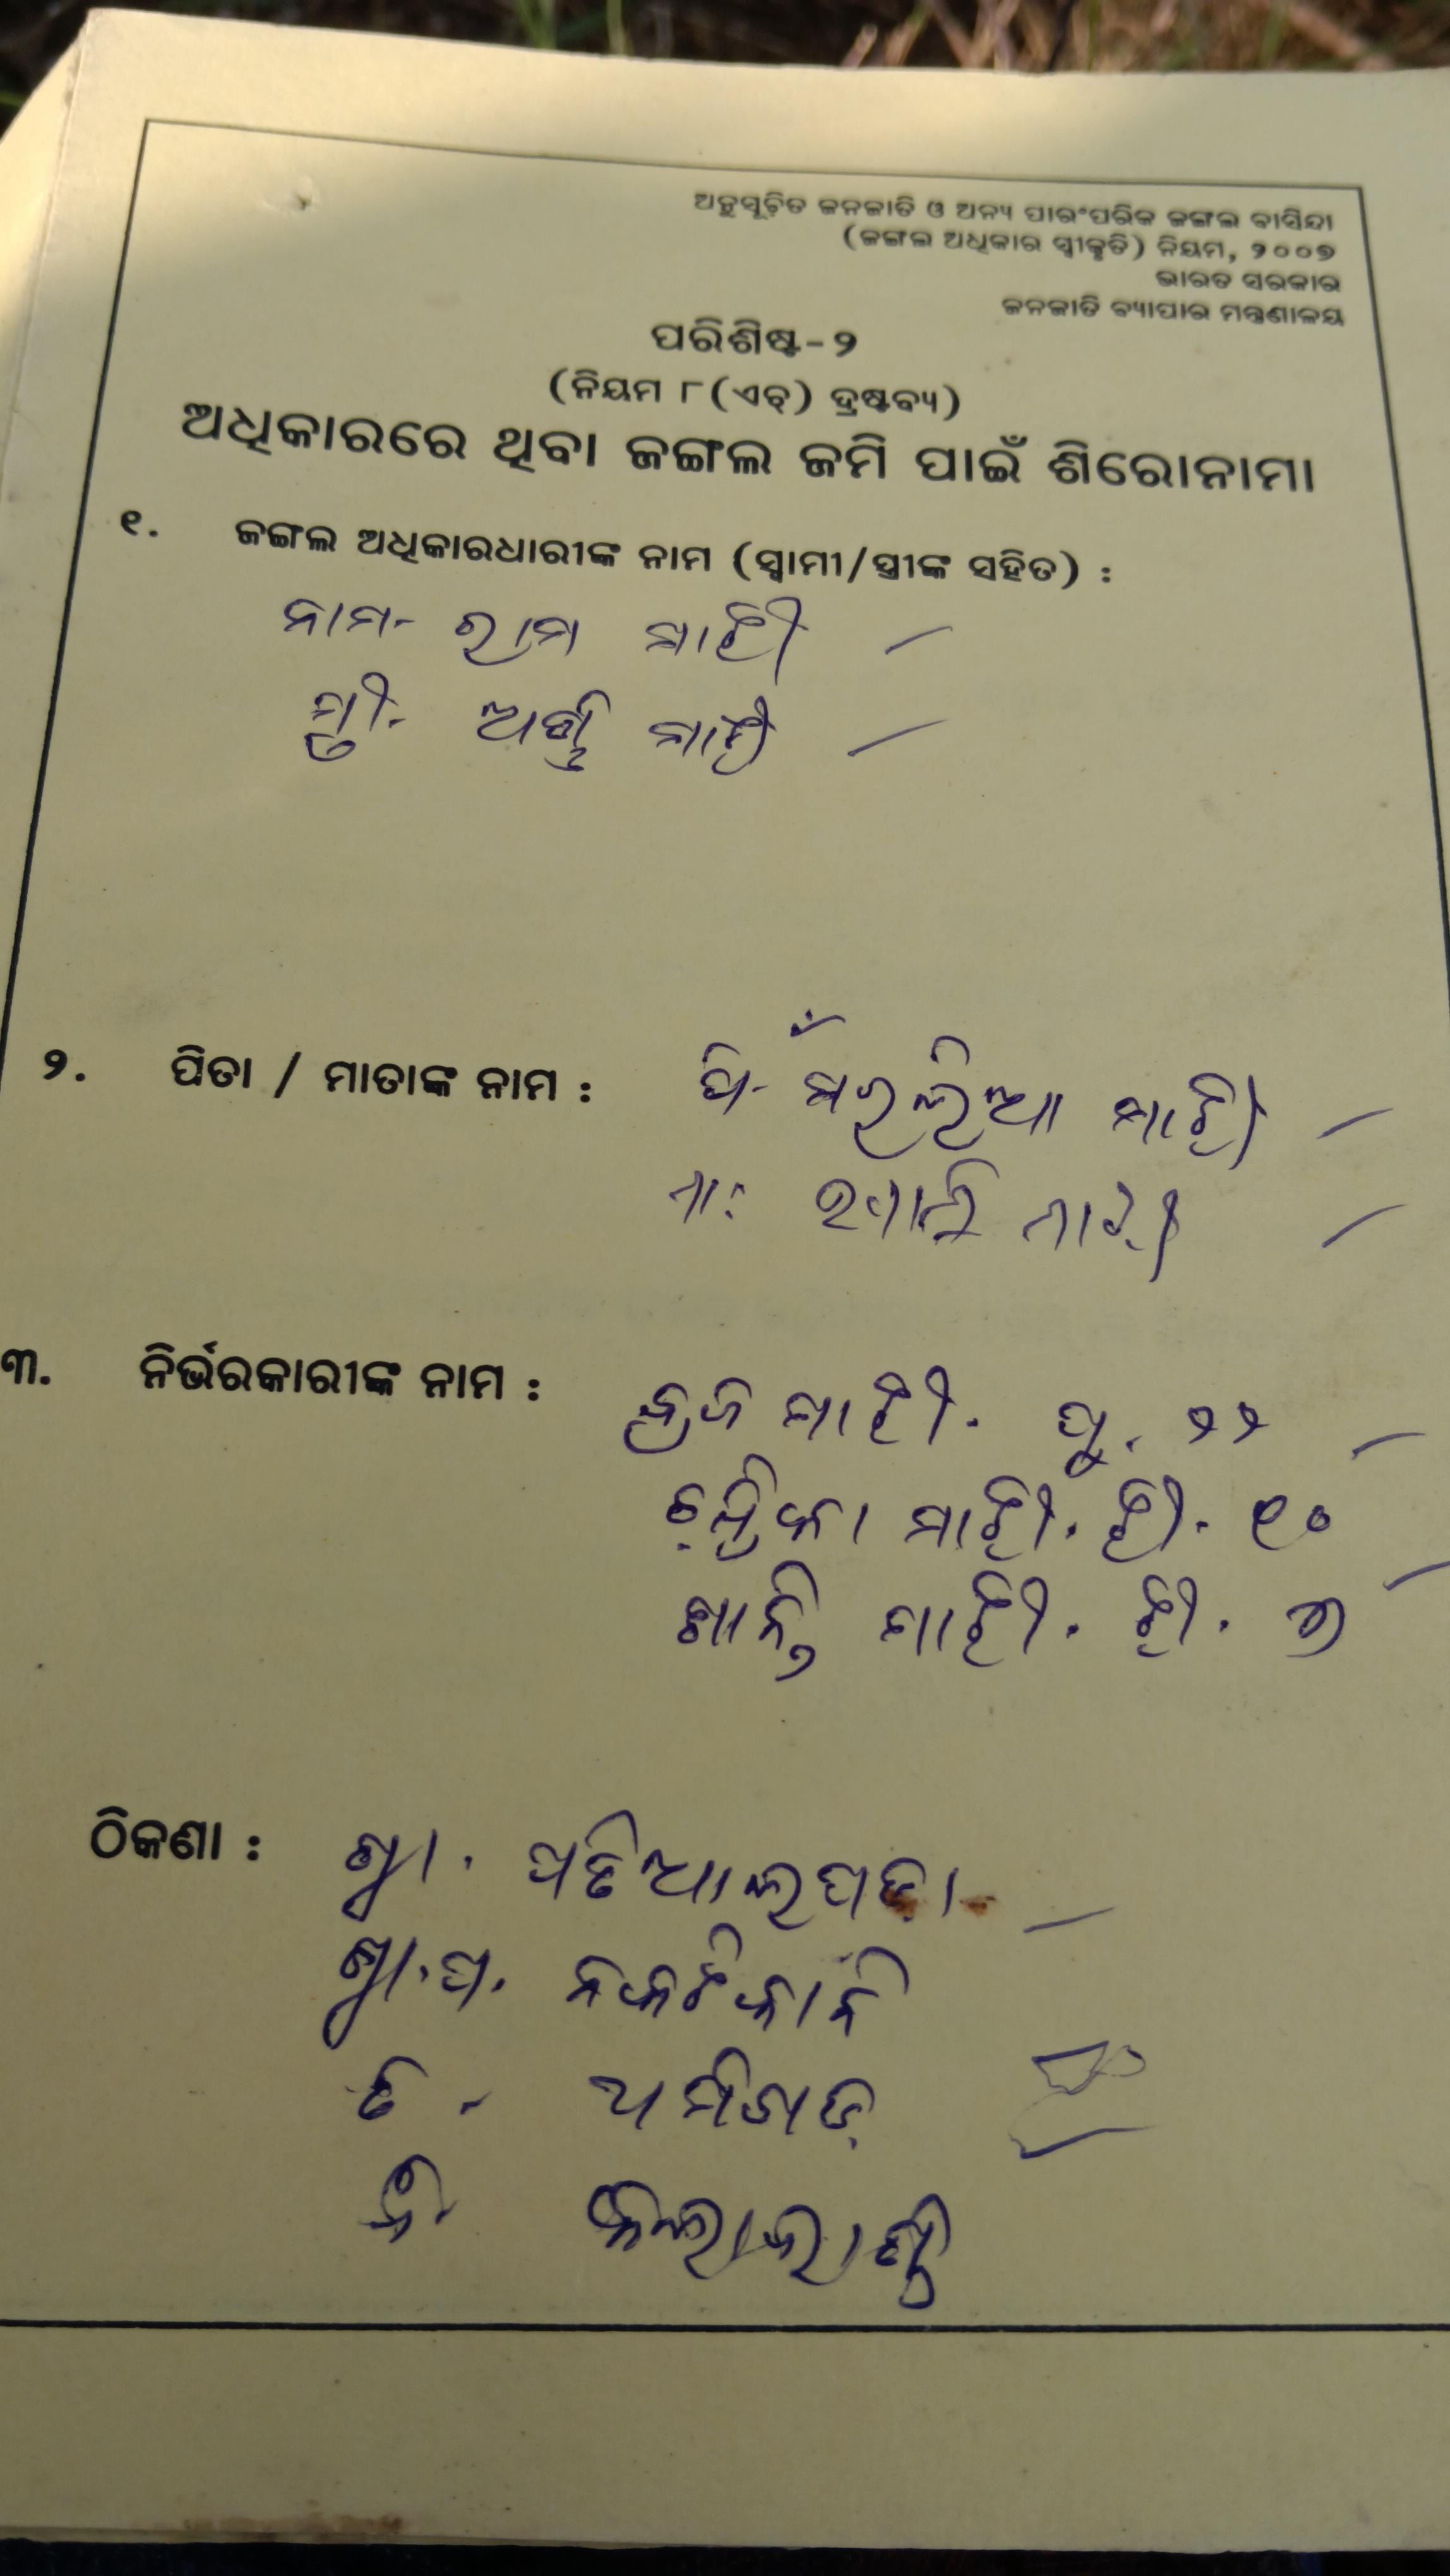 ଅନୁସୂଚିତ ଜନଜାତି ଓ ଅନ୍ୟ ପାରଂପରିକ ଜଙ୍ଗଲ ବାସିନ୍ଦା
(ଜଙ୍ଗଲ ଅଧିକାର ସ୍ୱୀକୃତି) ନିୟମ, ୨୦୦୭
ଭାରତ ସରକାର
ଜନଜାତି ବ୍ୟାପାର ମନ୍ତ୍ରଣାଳୟ
ପରିଶିଷ୍ଟ-୨
(ନିୟମ ୮(ଏଚ୍) ଦ୍ରଷ୍ଟବ୍ୟ)
ଅଧିକାରରେ ଥିବା ଜଙ୍ଗଲ ଜମି ପାଇଁ ଶିରୋନାମା
୧. ଜଙ୍ଗଲ ଅଧିକାରଧାରୀଙ୍କ ନାମ (ସ୍ୱାମୀ/ସ୍ତ୍ରୀଙ୍କ ସହିତ) :
ନାମ- ରାମ ମାଝୀ
ସ୍ତ୍ରୀ- ମାଝୀ
୨. ପିତା / ମାତାଙ୍କ ନାମ : ପି- ମାଝୀ
ମା: ମାଝୀ
୩. ନିର୍ଭରକାରୀଙ୍କ ନାମ : ମାଝୀ. ପୁ. ୨୨
ମାଝୀ. ଝୀ. ୧୦
ଶାନ୍ତି ମାଝୀ. ଝୀ. ୭
ଠିକଣା : ଗ୍ରା. ପଡିଆଲପଡ଼ା
ଗ୍ରା.ପ. ନକଟିକାନି
ତ - ଥମିଗଡ଼
ଜି କଳାହାଣ୍ଡି